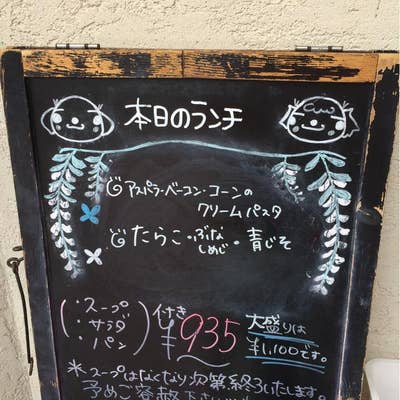 本日のランチ
アスパラ・ベーコン・コーンの
クリームパスタ
たらこ・ぶなしめじ・青じそ
(・スープ ・サラダ ・パン)付き ¥935 大盛りは ¥1,100です。
*スープはなくなり次第終了いたします。
予めご容赦下さい